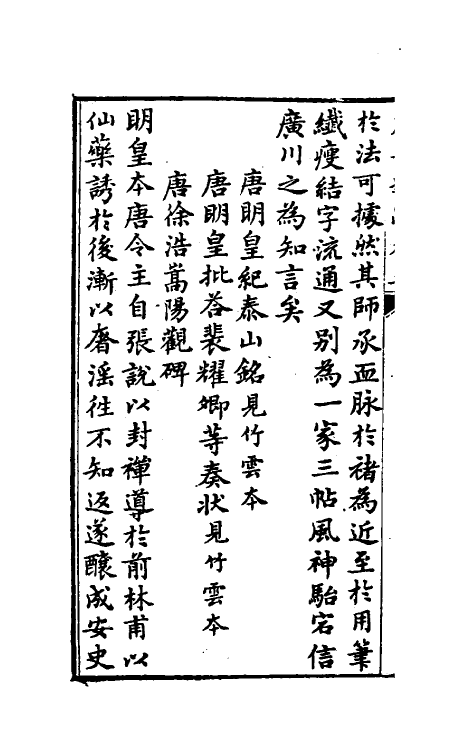 於法可據然其師承血脉於褚為近至於用筆
纎瘦結字流通又别為一家三帖風神駘宕信
廣川之為知言矣
唐明皇紀泰山銘見竹雲本
唐明皇批答裴耀卿等奏狀見竹雲本
唐徐浩嵩陽觀碑
明皇本唐令主自張說以封禪導於前林甫以
仙藥誘於後漸以奢淫徃不知返遂釀成安史